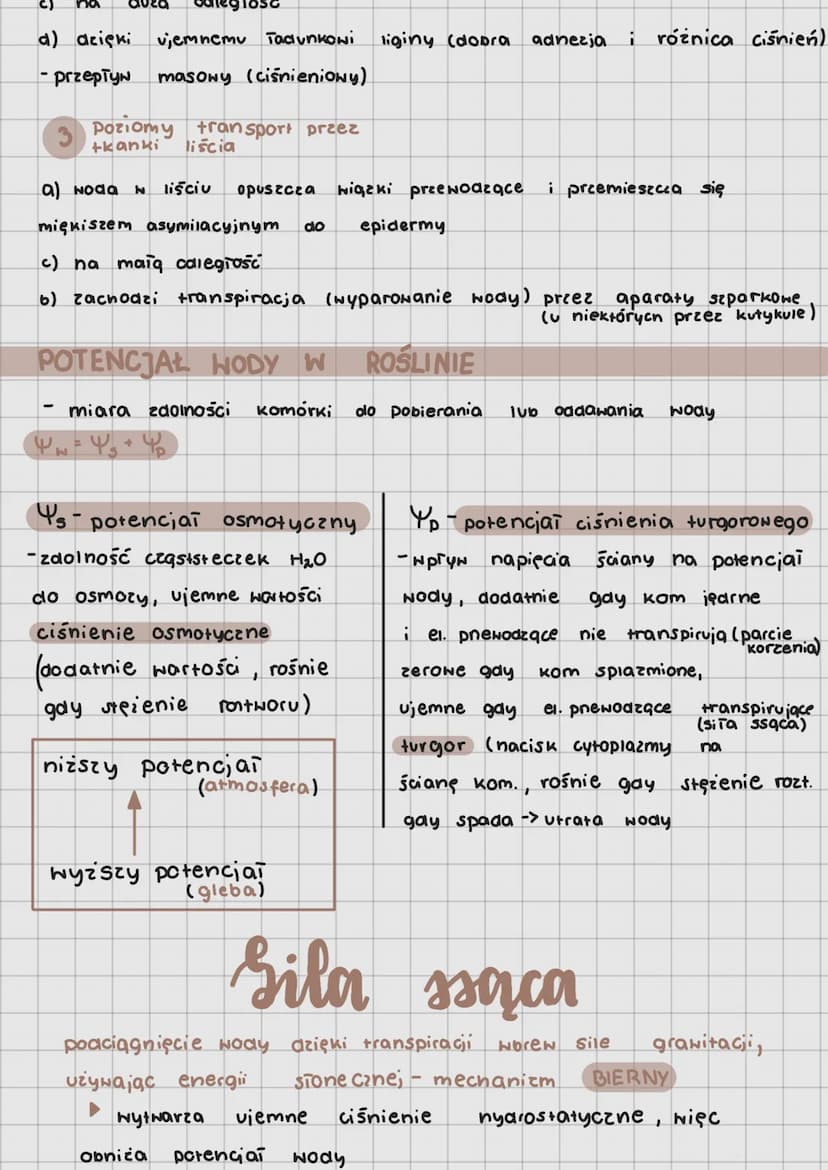 c) na dużą odległość
d) dzięki ujemnemu ładunkowi liginy (dobra adhezja i różnica ciśnień)
- przepływ masowy (ciśnieniowy)
3 poziomy transport przez
tkanki liścia
a) woda w liściu opuszcza wiązki przewodzące i przemieszcza się
miękiszem asymilacyjnym do epidermy
c) na małą odległość
b) zachodzi transpiracja (wyparowanie wody) przez aparaty szparkowe
(u niektórych przez kutykule)
POTENCJAŁ WODY W ROŚLINIE
- miara zdolności komórki do pobierania lub oddawania wody
Ψw = Ψs + Ψp
Ψs - potencjał osmotyczny
- zdolność cząststeczek H₂O
do osmozy, ujemne wartości
ciśnienie osmotyczne
(dodatnie wartości, rośnie
gdy stężenie roztworu)
niższy potencjał
(atmosfera)
wyższy potencjał
(gleba)
Ψp - potencjał ciśnienia turgorowego
- wpływ napięcia ściany na potencjał
wody, dodatnie gdy kom jędrne
i el. przewodzące nie transpirują (parcie
korzenia)
zerowe gdy kom splazmione,
ujemne gdy el. przewodzące transpirujące
(siła ssąca)
turgor (nacisk cytoplazmy na
ścianę kom., rośnie gdy stężenie rozt.
gdy spada -> utrata wody
Siła ssąca
podciągnięcie wody dzięki transpiracji wbrew sile grawitacji,
używając energii słonecznej - mechanizm BIERNY
wytwarza ujemne ciśnienie hydrostatyczne, więc
obniża potencjał wody